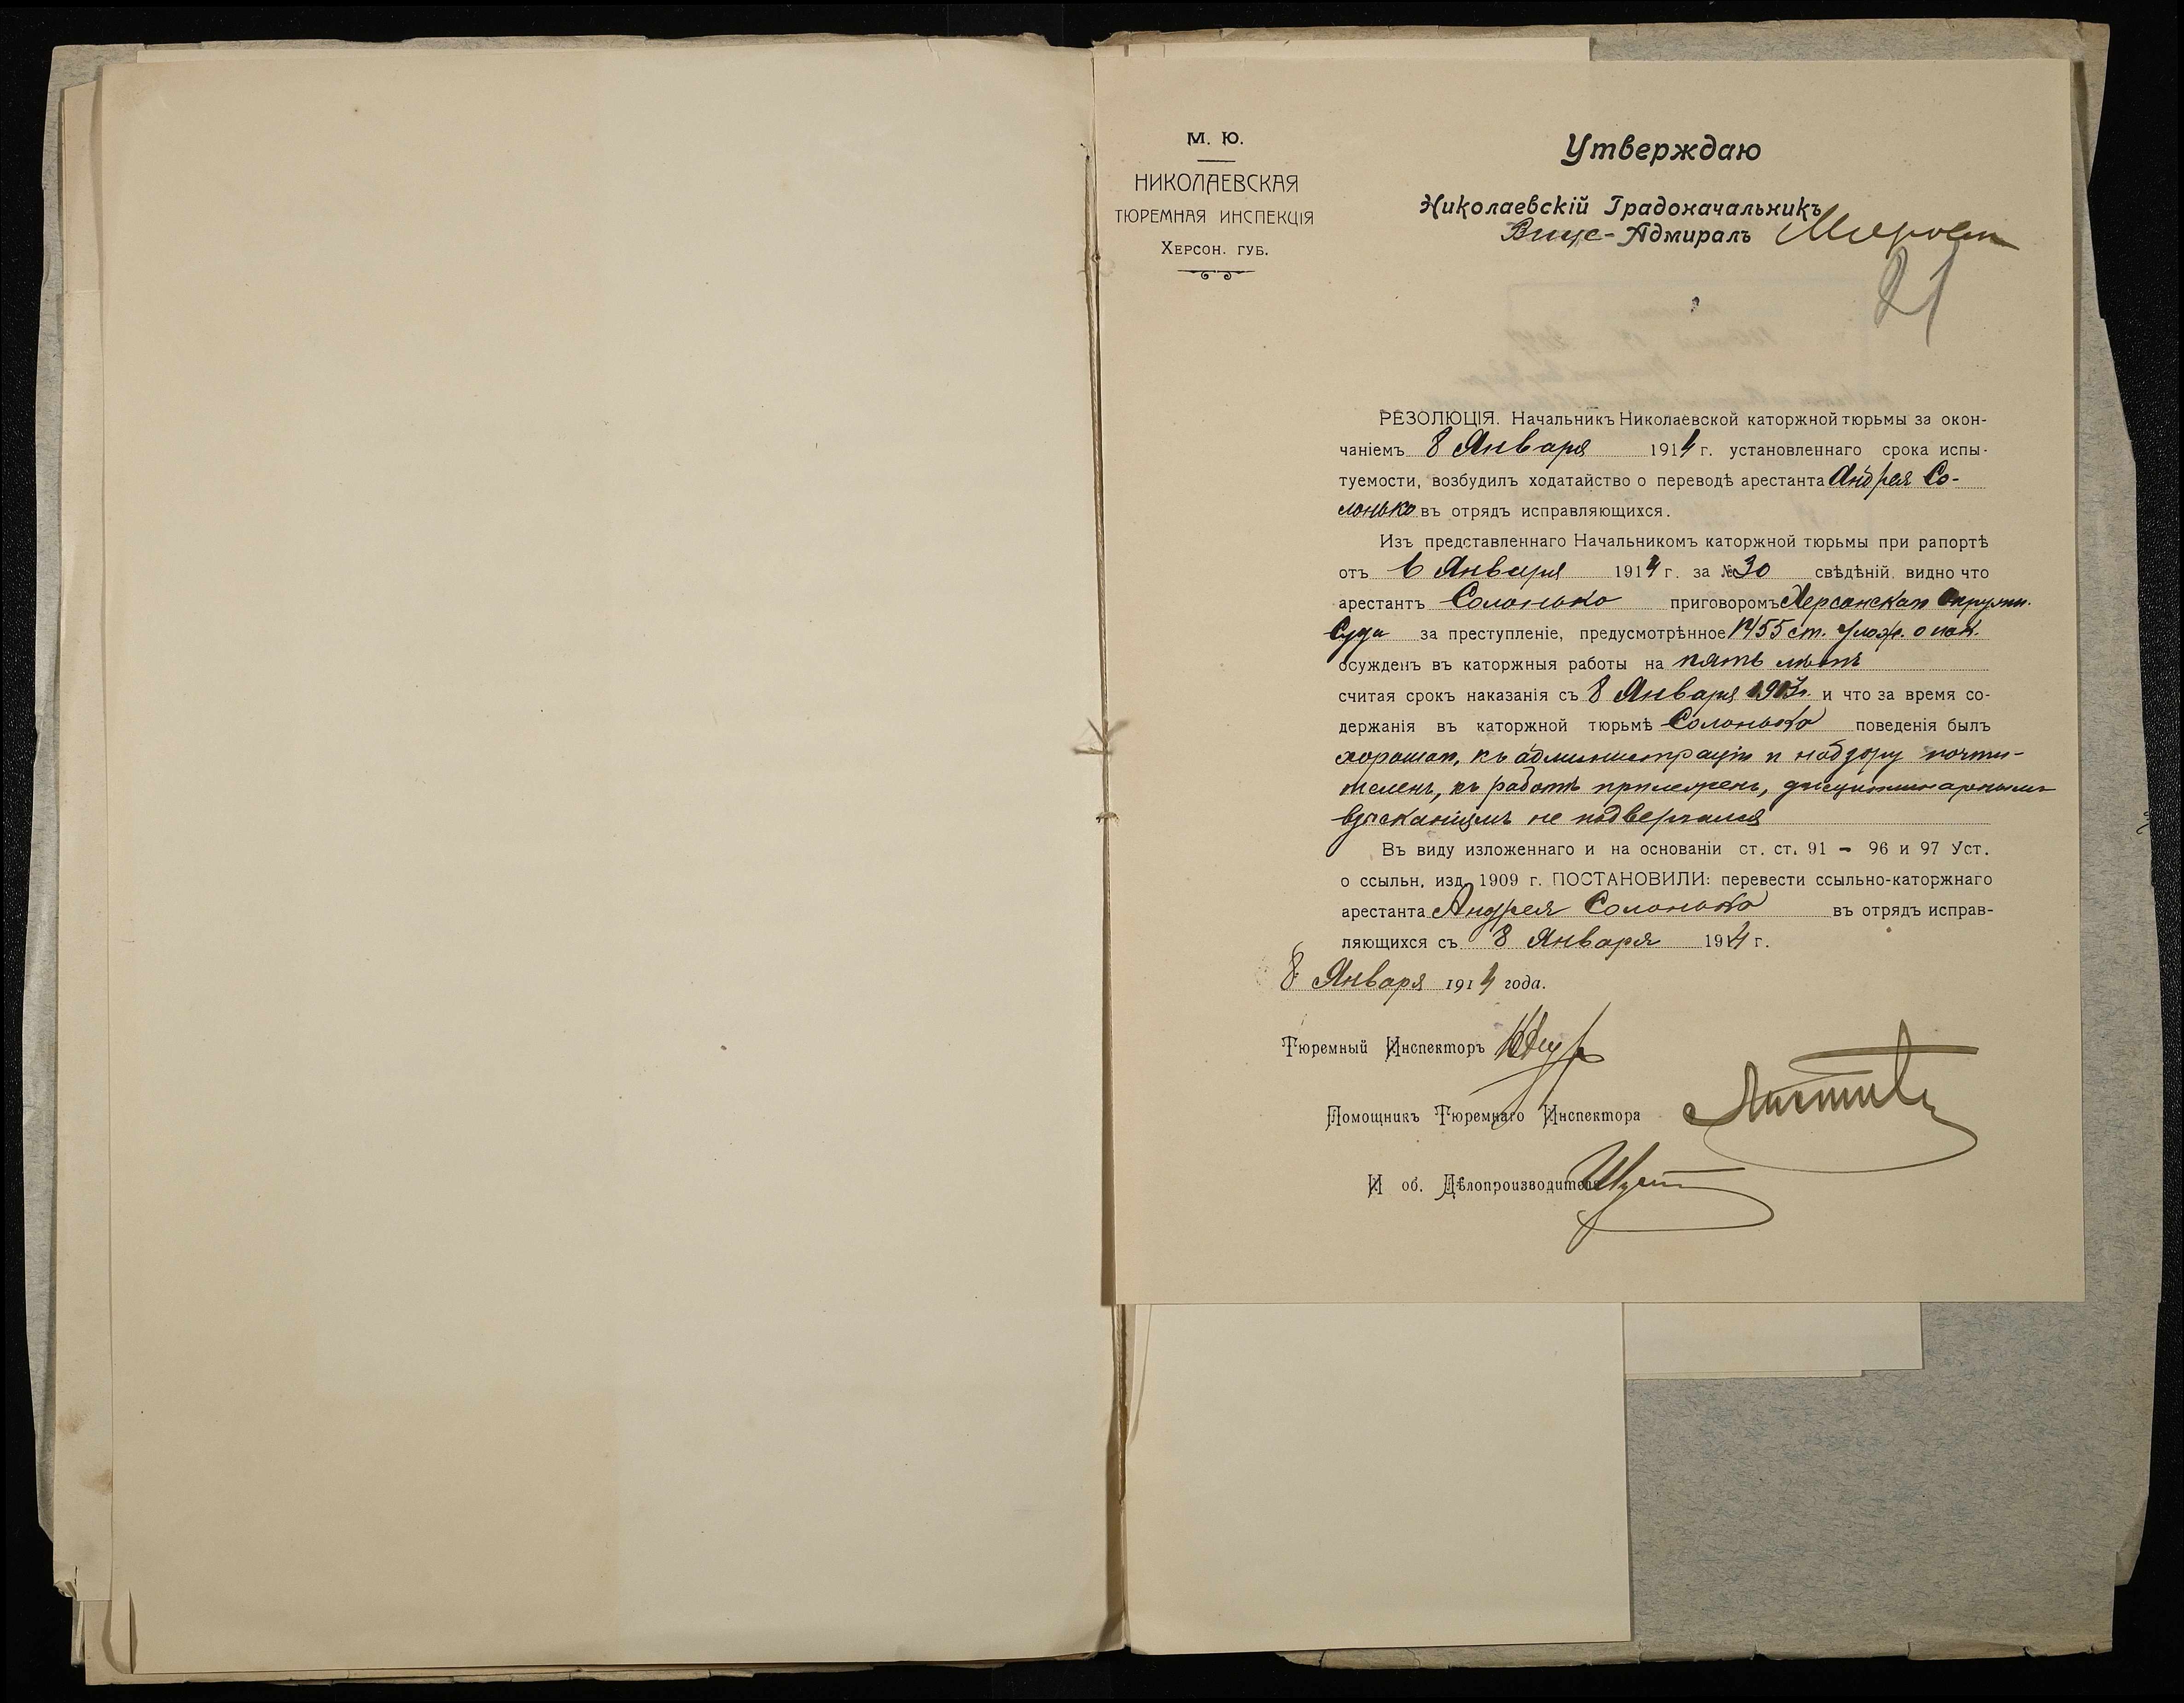 М. Ю.
НИКОЛАЕВСКАЯ
ТЮРЕМНАЯ ИНСПЕКЦІЯ
ХЕРСОН. ГУБ.
Утверждаю
Николаевскій Градоначальникъ
Вице-Адмиралъ
21
РЕЗОЛЮЦІЯ. Начальникъ Николаевской каторжной тюрьмы за окон-
чаніемъ 8 Января 1914 г. установленнаго срока испы-
туемости, возбудилъ ходатайство о переводѣ арестанта Андрея Со-
лонько въ отрядъ исправляющихся.
Изъ представленнаго Начальникомъ каторжной тюрьмы при рапортѣ
отъ 6 Января 1914 г. за № 30 свѣдѣній видно что
арестантъ Солонько приговоромъ Херсонскаго Окружн.
Суда за преступленіе, предусмотрѣнное 1455 ст. Улож. о нак.
осужденъ въ каторжныя работы на пять лѣтъ
считая срокъ наказанія съ 8 Января г. и что за время со-
держанія въ каторжной тюрьмѣ Солонько поведенія былъ
хорошаго, къ администраціи и надзору почти-
теленъ, къ работѣ прилеженъ, дисциплинарнымъ
взысканіямъ не подвергался
Въ виду изложеннаго и на основаніи ст. ст. 91 - 96 и 97 Уст.
о ссыльн, изд. 1909 г. ПОСТАНОВИЛИ: перевести ссыльно-каторжнаго
арестанта Андрея Солонько въ отрядъ исправ-
ляющихся съ 8 Января 1914 г.
8 Января 1914 года.
Тюремный Инспекторъ
Помощникъ Тюремнаго Инспектора
И об. Дѣлопроизводителя